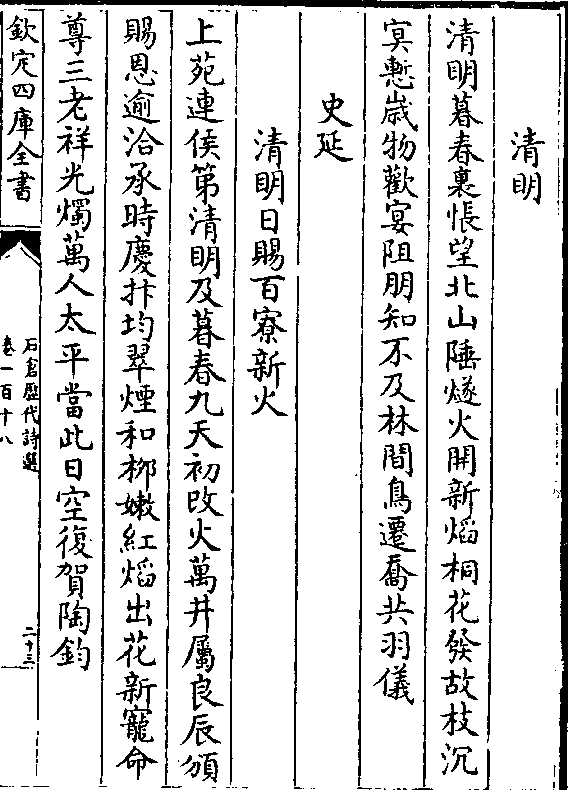 清明
清明暮春裏悵望北山陲燧火開新焰桐花發故枝沉
冥慙歳物歡宴阻朋知不及林間鳥遷喬共羽儀
史延
清明日賜百寮新火
上苑連侯第清明及暮春九天初改火萬井屬良辰頒
賜恩逾洽承時慶抃均翠煙和栁嫩紅焰出花新寵命
尊三老祥光燭萬人太平當此日空復賀陶鈞
欽定四庫全書
石倉歷代詩選
卷一百十八
二十三